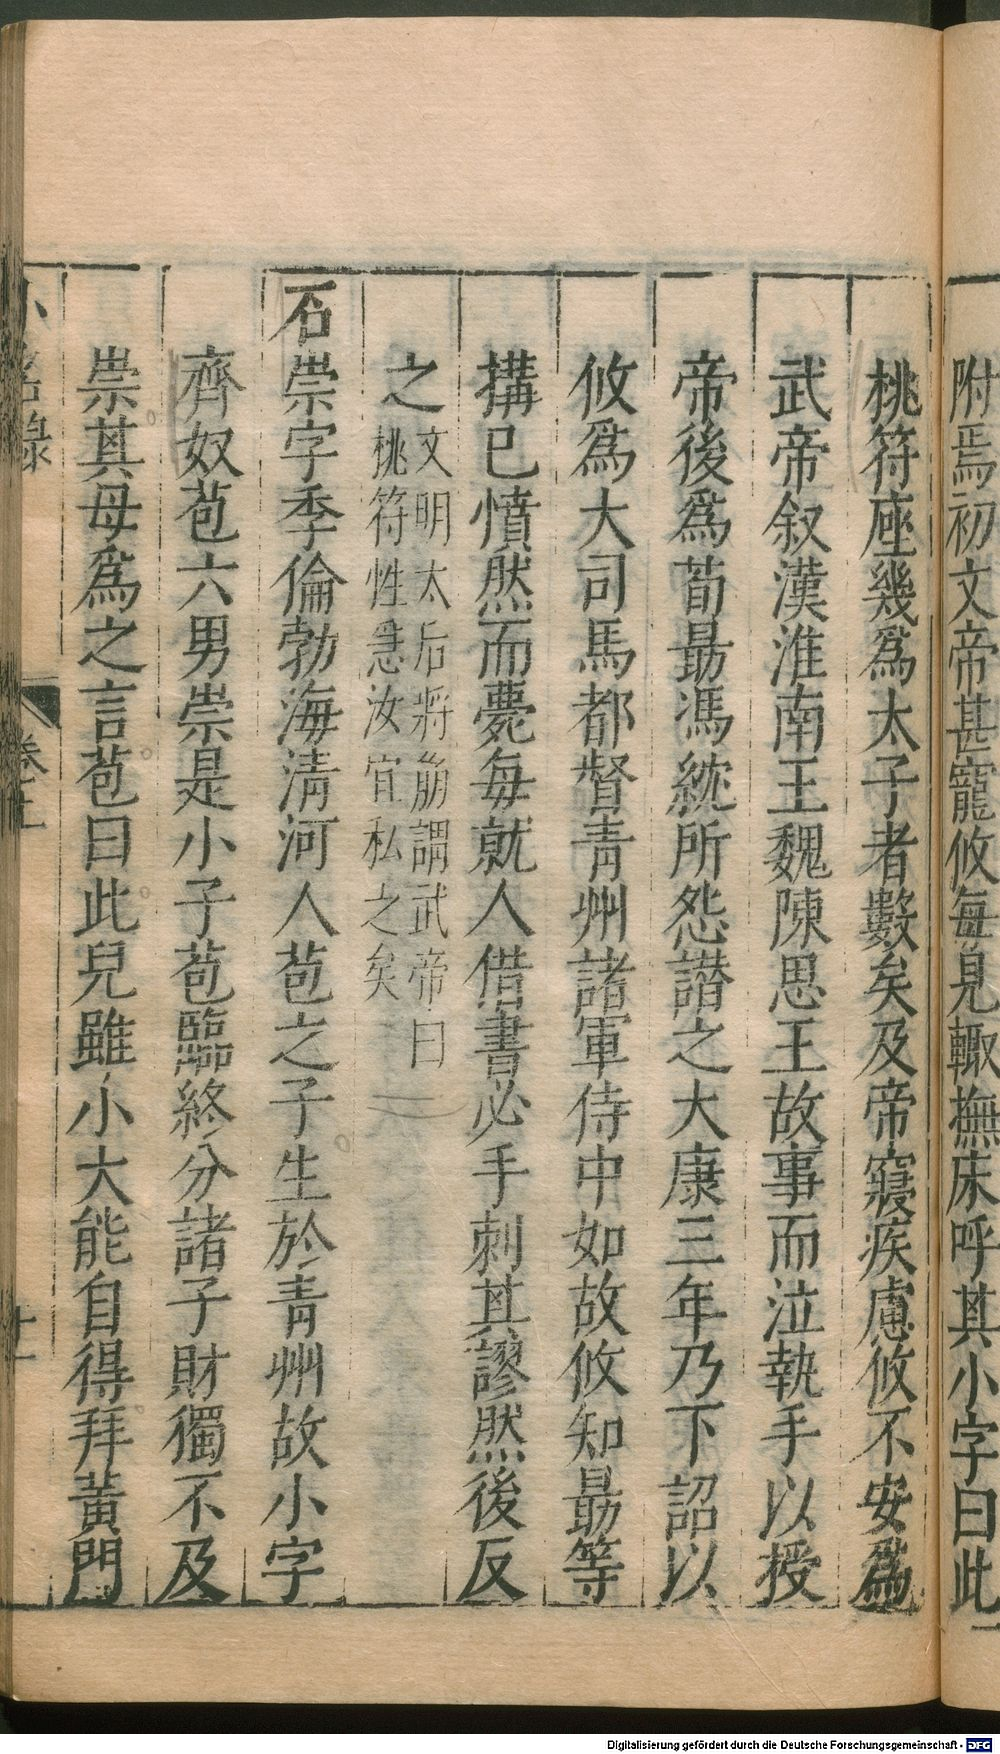 附焉初文帝甚寵攸每見輙撫床呼其小字曰此
桃符座幾爲太子者數矣及帝寢疾慮攸不安爲
武帝叙漢淮南王魏陳思王故事而泣執手以授
帝後爲荀勗馮紞所怨譛之大康三年乃下詔以
攸爲大司馬都督青州諸軍侍中如故攸知勗等
搆已憤然而薨每就人借書必手刺其謬然後反
之
文明太后將崩謂武帝曰
桃符性急汝宜私之矣
石崇字季倫勃海清河人苞之子生於青州故小字
齊奴苞六男崇是小子苞臨終分諸子財獨不及
崇其母爲之言苞曰此兒雖小大能自得拜黃門
小名錄
卷上
十一
Digitalisierung gefördert durch die Deutsche Forschungsgemeinschaft - DFG